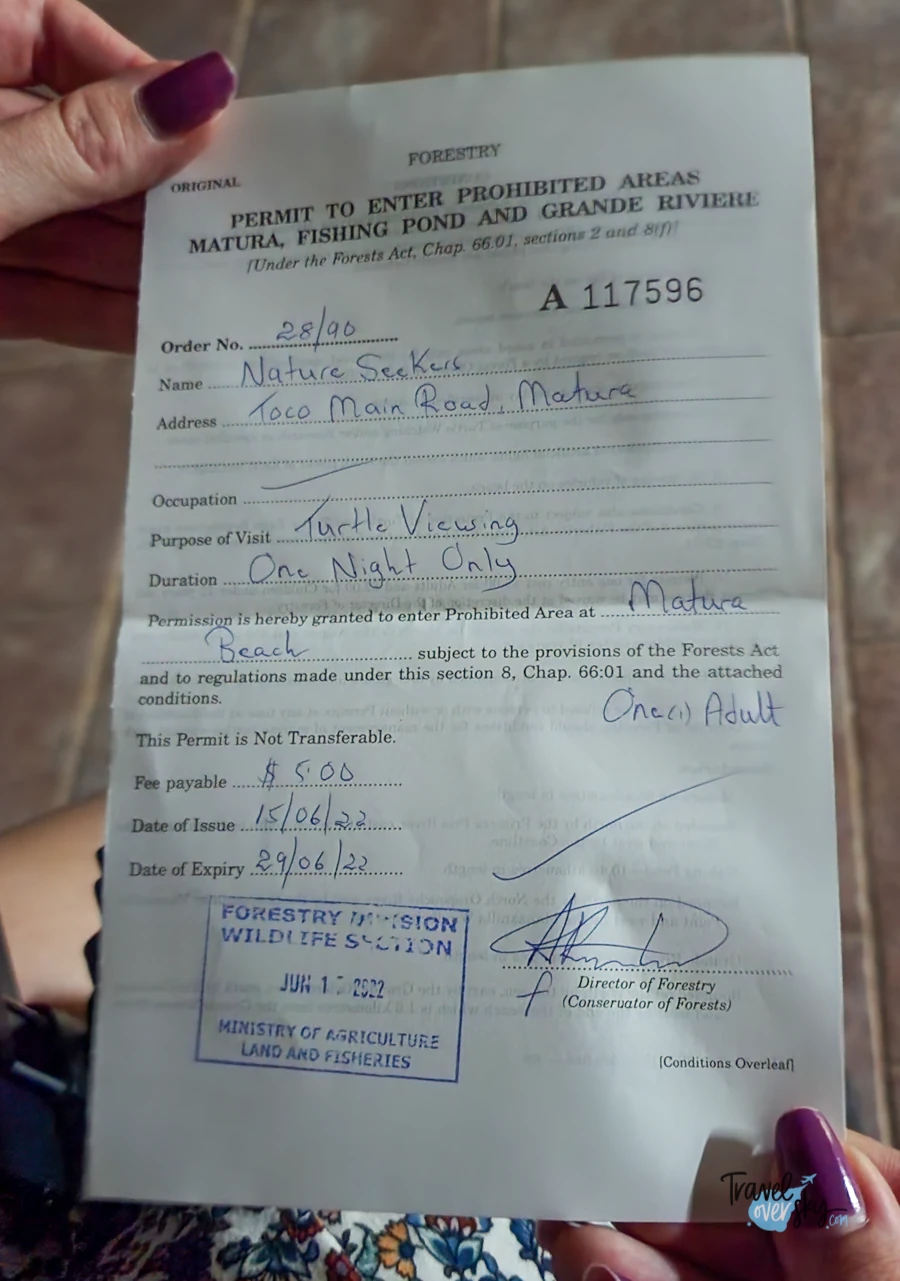 FORESTRY
ORIGINAL
PERMIT TO ENTER PROHIBITED AREAS
MATURA, FISHING POND AND GRANDE RIVIERE
[Under the Forests Act, Chap. 66.01, sections 2 and 8(f)]
A 117596
Order No. 28/90
Name Nature Seekers
Address Toco Main Road, Matura
Occupation
Purpose of Visit Turtle Viewing
Duration One Night Only
Permission is hereby granted to enter Prohibited Area at Matura
Beach subject to the provisions of the Forests Act
and to regulations made under this section 8, Chap. 66:01 and the attached
conditions.
One (1) Adult
This Permit is Not Transferable.
Fee payable $ 5.00
Date of Issue 15/06/22
Date of Expiry 29/06/22
FORESTRY DIVISION
WILDLIFE SECTION
JUN 1 2022
MINISTRY OF AGRICULTURE
LAND AND FISHERIES
f Director of Forestry
(Conservator of Forests)
[Conditions Overleaf]
Travel
over sky.com